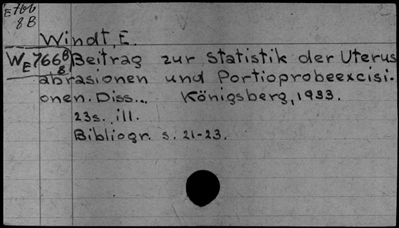 E766
8B
Windt, E.
WE766 8 B Beitrag zur Statistik der Uterus
abrasionen und Portioprobeexcisi-
onen. Diss... Königsberg, 1933.
23s. ill.
Bibliogr. s. 21-23.